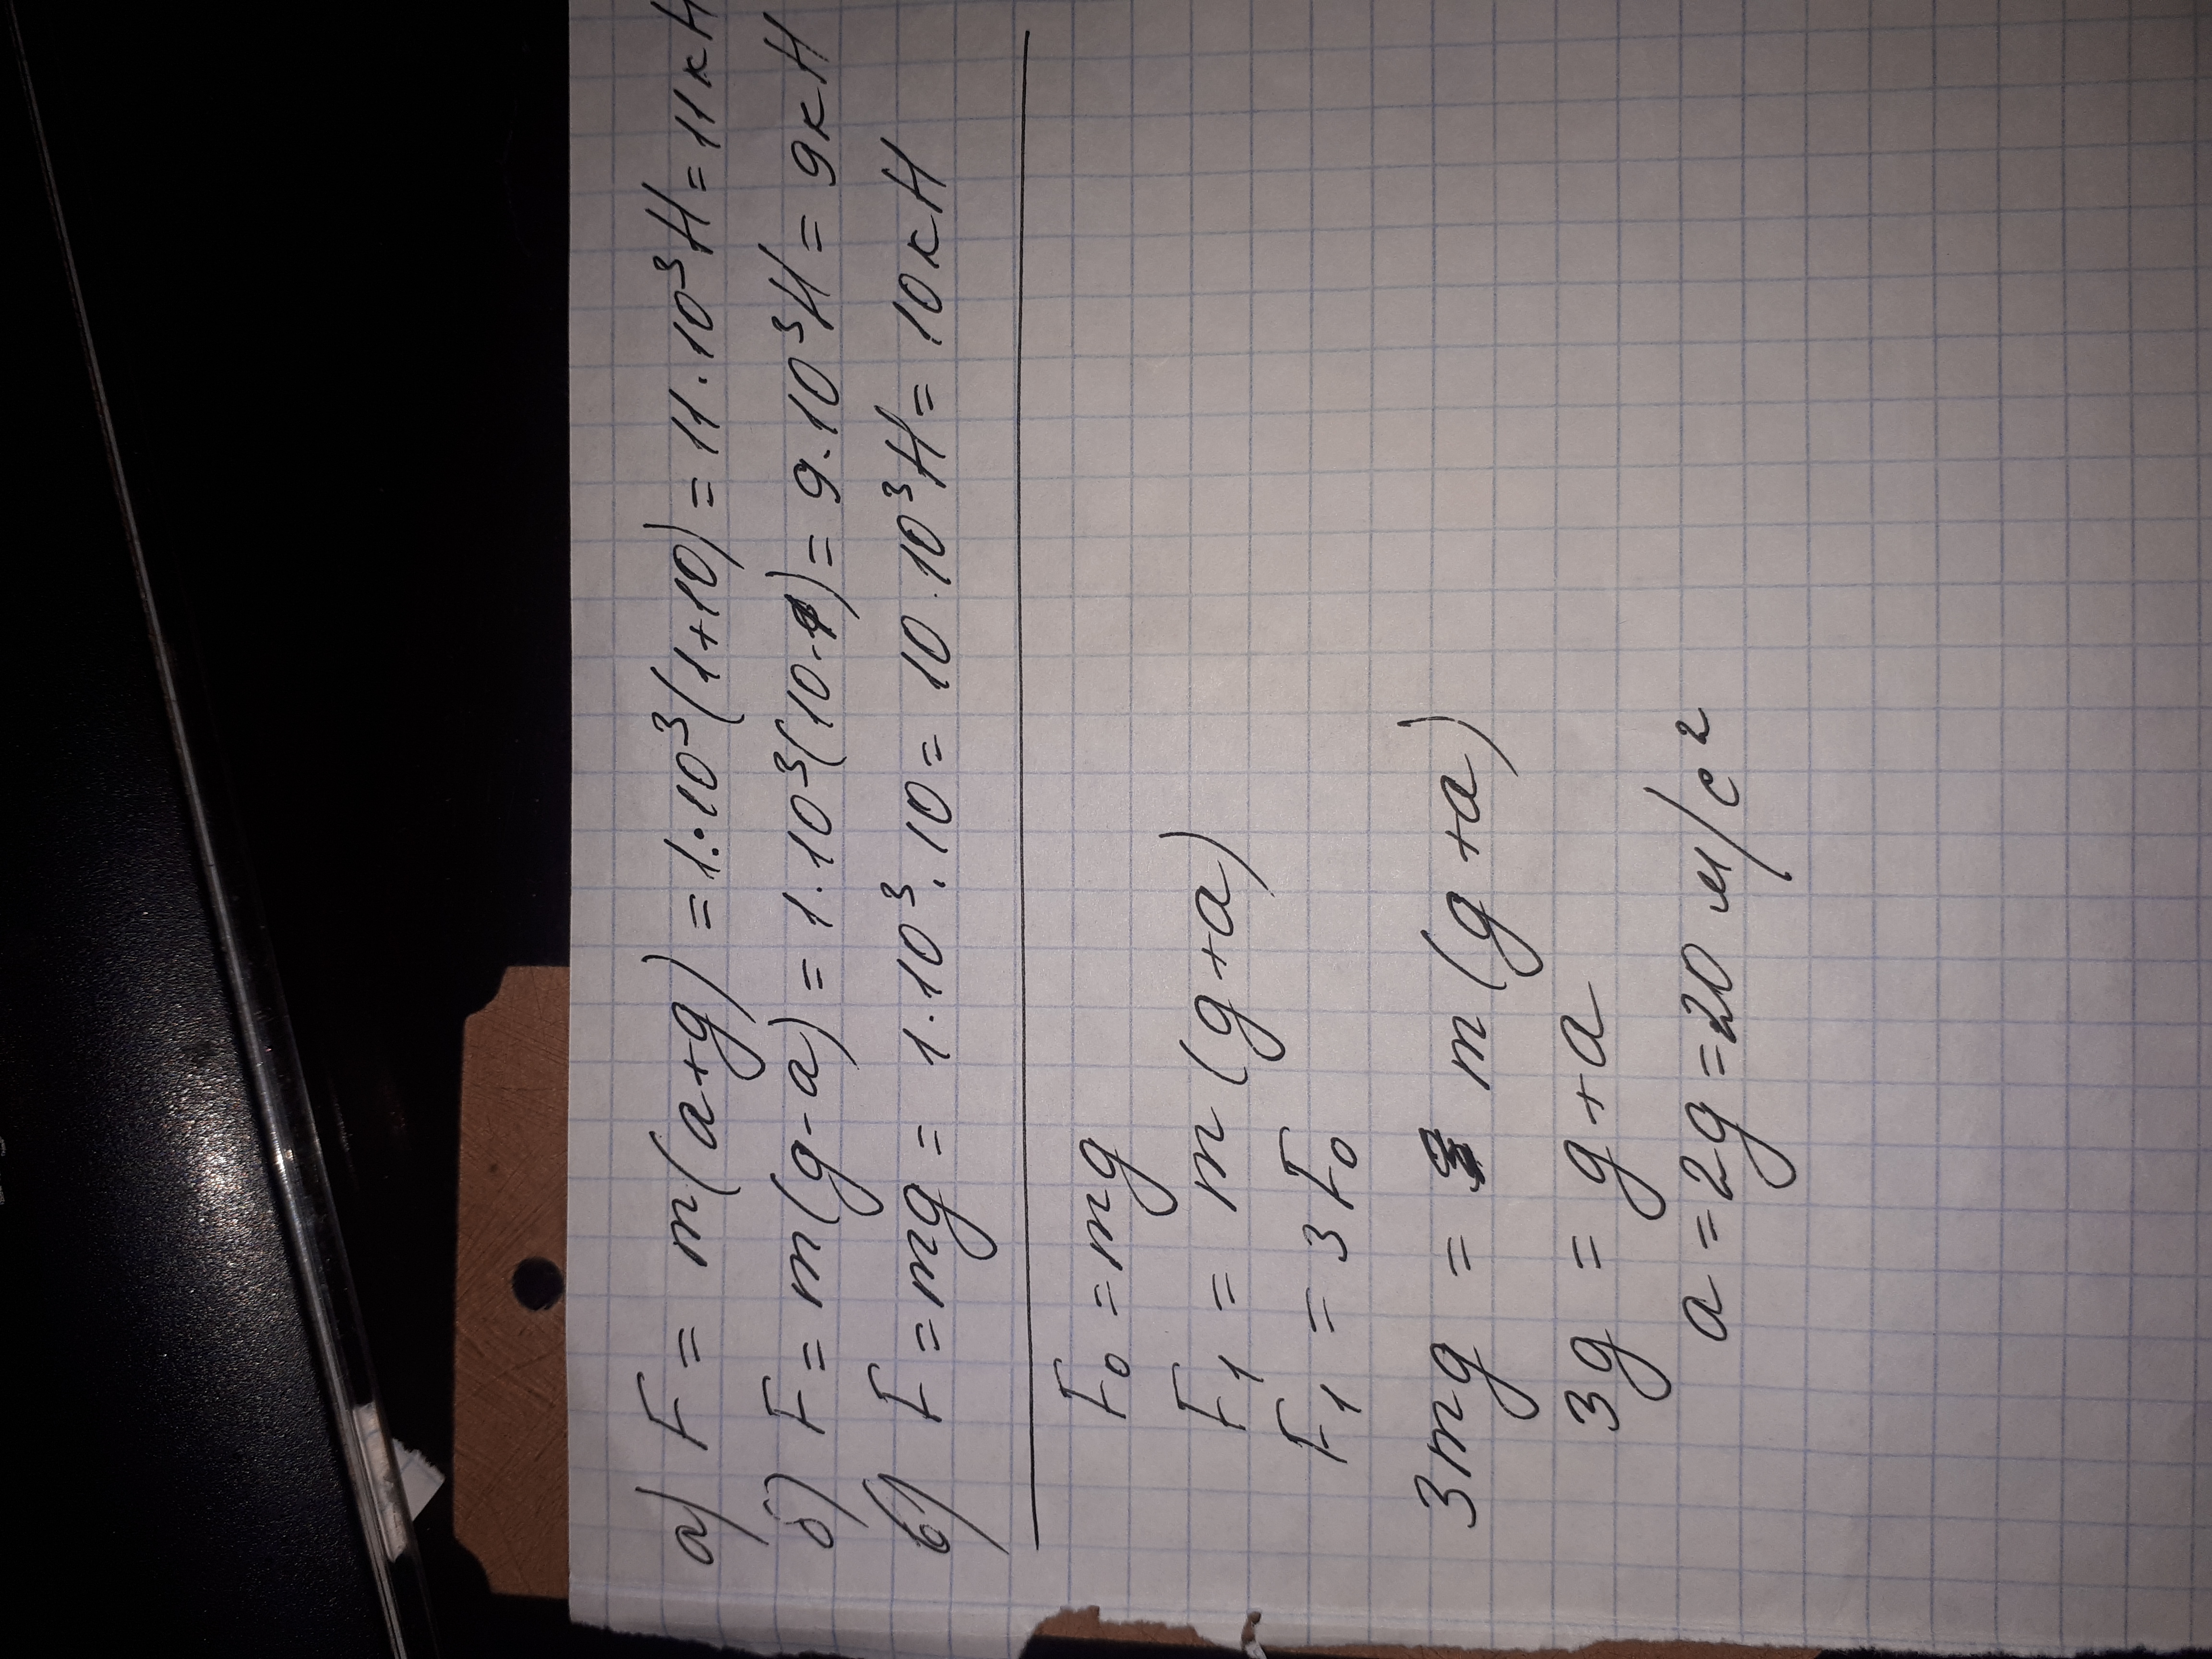 а) F = m(a+g) = 1·10³(1+10) = 11·10³Н = 11кН
б) F = m(g-a) = 1·10³(10-1) = 9·10³Н = 9кН
в) F = mg = 1·10³·10 = 10·10³Н = 10кН
F₀ = mg
F₁ = m(g+a)
F₁ = 3F₀
3mg = m(g+a)
3g = g+a
a = 2g = 20 м/с²